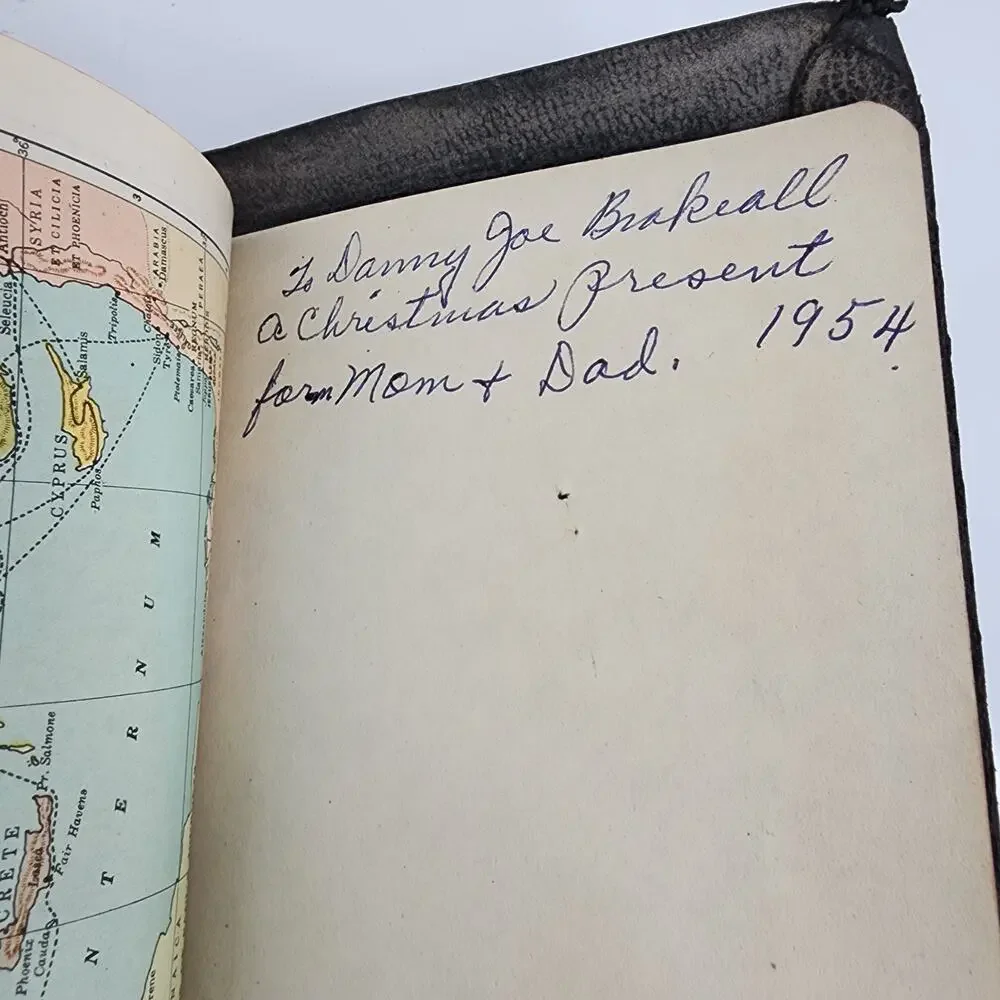 To Danny Joe Brakeall
a Christmas Present
1954.
form Mom + Dad.
36°
3
Antioch
SYRIA
ET CILICIA
ET PHOENICIA
ARABIA
Damascus
PERAEA
Seleucia
Salamis
Tripolis
Sidon
Tyre
Ptolemais
Caesarea
CYPRUS
Paphos
NTERNUM
Pr. Salmone
Fair Havens
CRETE
Lasea
Phoenix
Cauda